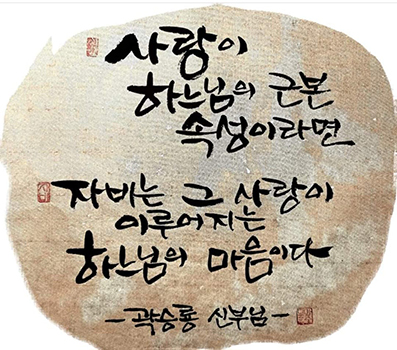 사랑이
하느님의 근본
속성이라면
자비는 그 사랑이
이루어지는
하느님의 마음이다
-곽승룡 신부님-